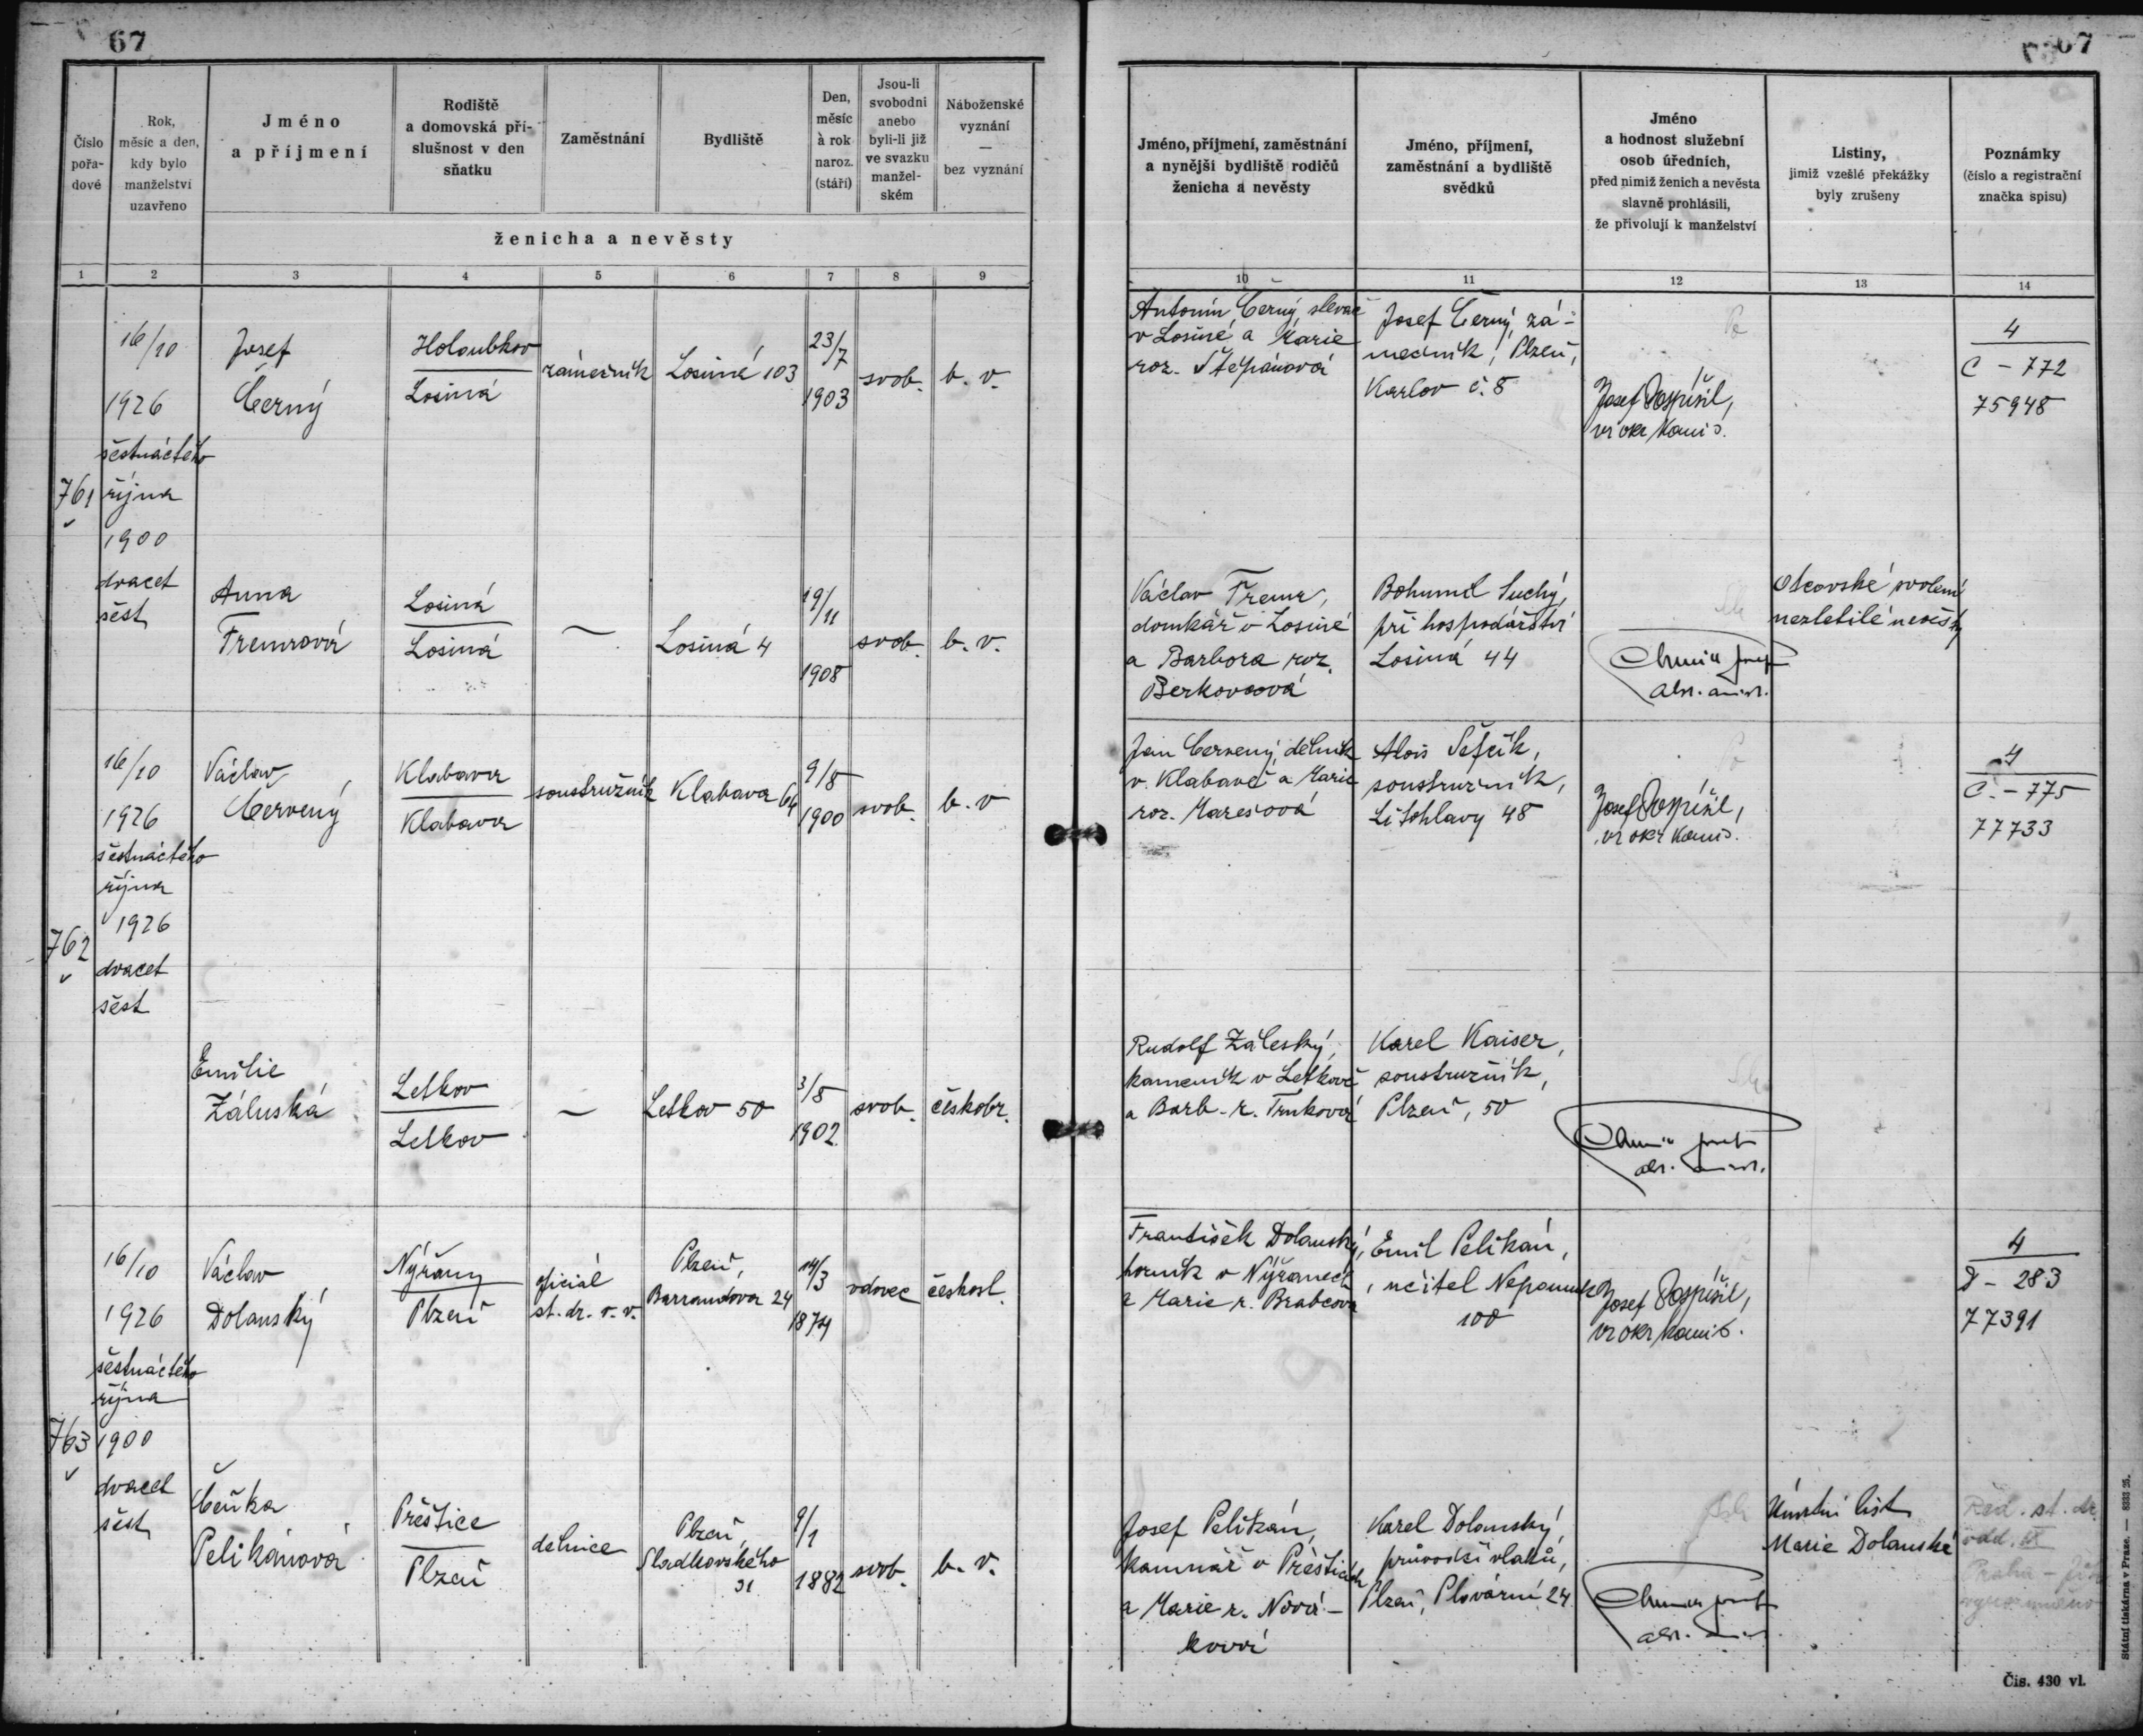 67
67
Číslo
pořa-
dové
Rok,
měsíc a den,
kdy bylo
manželství
uzavřeno
Jméno
a příjmení
Rodiště
a domovská pří-
slušnost v den
sňatku
Zaměstnání
Bydliště
Den,
měsíc
à rok
naroz.
(stáří)
Jsou-li
svobodni
anebo
byli-li již
ve svazku
manžel-
ském
Náboženské
vyznání
—
bez vyznání
ženicha a nevěsty
Jméno, příjmení, zaměstnání
a nynější bydliště rodičů
ženicha a nevěsty
Jméno, příjmení,
zaměstnání a bydliště
svědků
Jméno
a hodnost služební
osob úředních,
před nimiž ženich a nevěsta
slavně prohlásili,
že přivolují k manželství
Listiny,
jimiž vzešlé překážky
byly zrušeny
Poznámky
(číslo a registrační
značka spisu)
1 2 3 4 5 6 7 8 9
10 11 12 13 14
761
16/10
1926
šestnáctého
října
1900
dvacet
šest
Josef
Černý
Holoubkov
Losiná
zámečník
Losiná 103
23/7
1903
svob.
b. v.
Antonín Černý, slevač
v Losiné a Marie
roz. Štěpánová
Josef Černý, zá-
mečník, Plzeň,
Karlov č. 8
Josef Pospíšil,
vr okr komis.
4
C - 772
75948
Anna
Tremrová
Losiná
Losiná
—
Losiná 4
19/11
1908
svob.
b. v.
Václav Tremr,
domkář v Losiné
a Barbora roz.
Berkovcová
Bohumil Suchý,
při hospodářství
Losiná 44
Otcovské svolení
nezletilé nevěsty
762
16/10
1926
šestnáctého
října
1926
dvacet
šest
Václav
Červený
Klabava
Klabava
soustružník
Klabava 64
9/8
1900
svob.
b. v
Jan Červený, dělník
v Klabavě a Marie
roz. Marešová
Alois Šefčík,
soustružník,
Litohlavy 48
Josef Pospíšil,
vr okr komis.
4
Č. - 775
77733
Emilie
Záluská
Letkov
Letkov
—
Letkov 50
3/8
1902
svob.
českobr.
Rudolf Záleský,
kameník v Letkově
a Barb. r. Trnková
Karel Kaiser,
soustružník,
Plzeň, 50
763
16/10
1926
šestnáctého
října
1900
dvacet
šest
Václav
Dolanský
Nýřany
Plzeň
oficiál
st. dr. v. v.
Plzeň,
Barrandova 24
14/3
1874
vdovec
českosl.
František Dolanský,
horník v Nýřanech
a Marie r. Brabcová
Emil Pelikán,
učitel Nepomuk
100
Josef Pospíšil,
vr okr komis.
4
D - 283
77391
Čeňka
Pelikánová
Přeštice
Plzeň
dělnice
Plzeň,
Sladkovského
31
9/1
1882
svob.
b. v.
Josef Pelikán,
kamnář v Přešticích
a Marie r. Nová-
ková
Karel Dolanský,
průvodčí vlaků,
Plzeň, Plovární 24.
Úmrtní list
Marie Dolanské
Řed. st. dr.
odd.
Praha -
Čís. 430 vl.
Státní tiskárna v Praze. — 8333 25.